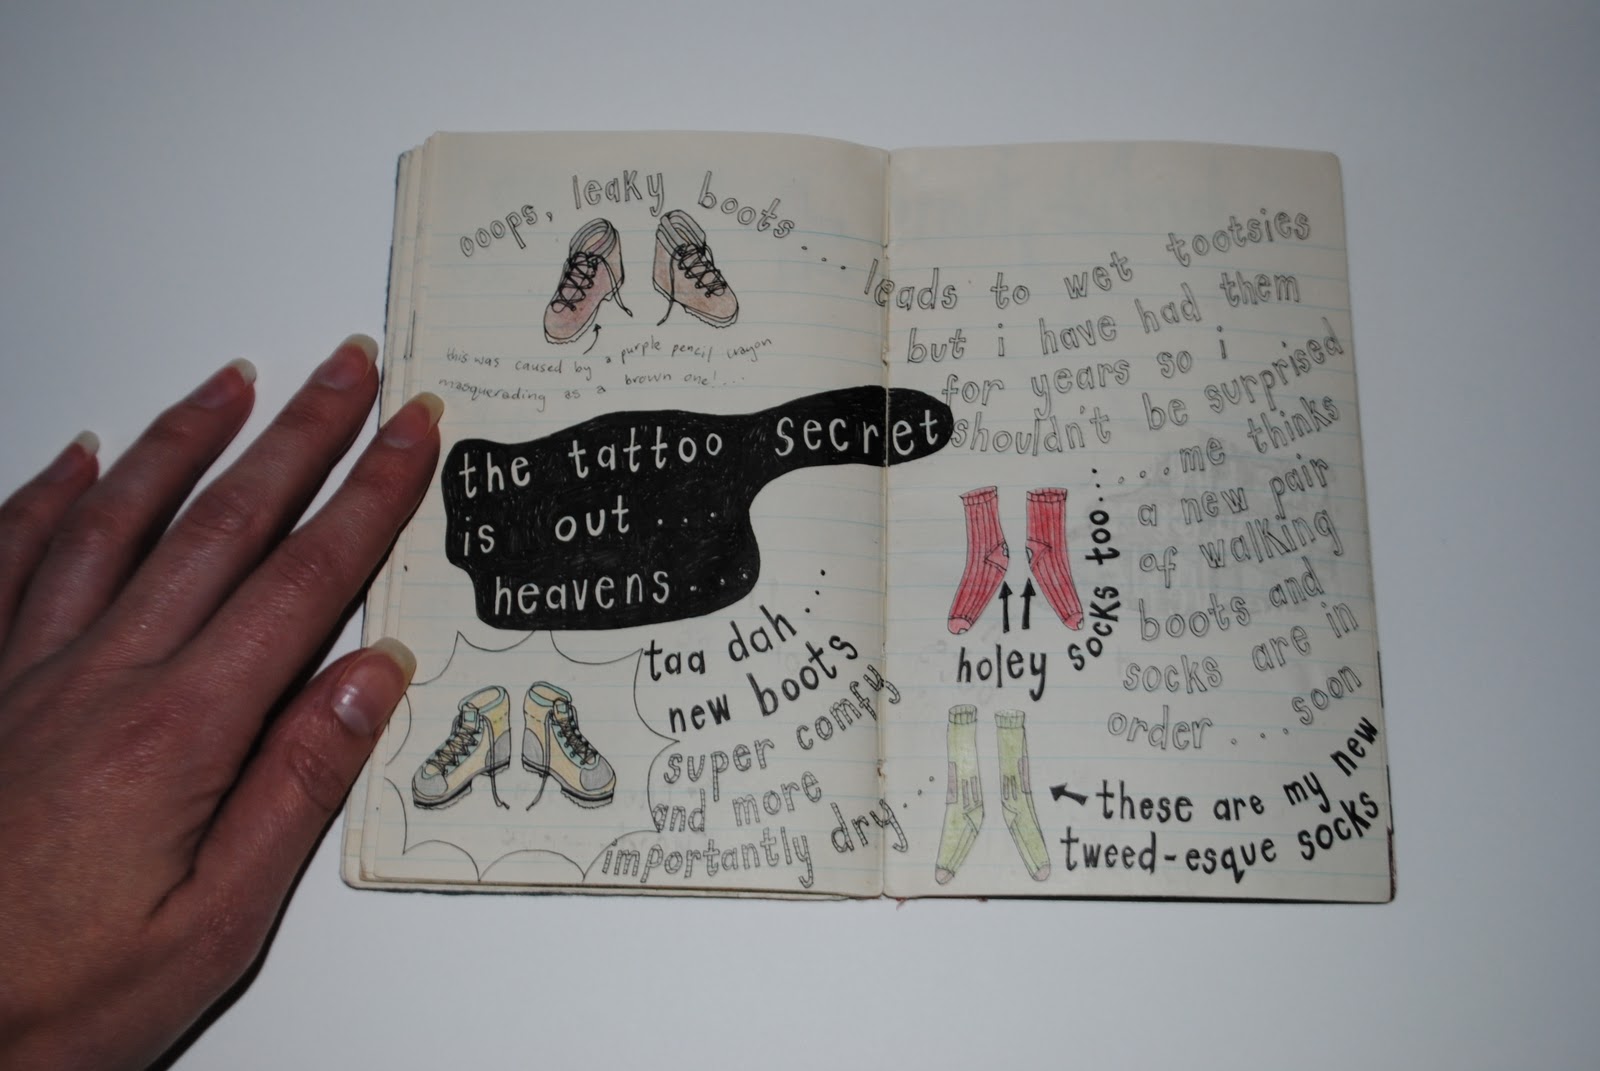 ooops, leaky boots...
this was caused by a purple pencil crayon
masquerading as a brown one!...
the tattoo secret
is out...
heavens...
taa dah...
new boots
super comfy
and more
importantly dry...
...leads to wet tootsies
but i have had them
for years so i
shouldn't be surprised
...me thinks
a new pair
of walking
boots and
socks are in
order...soon
holey socks too...
these are my new
tweed-esque socks